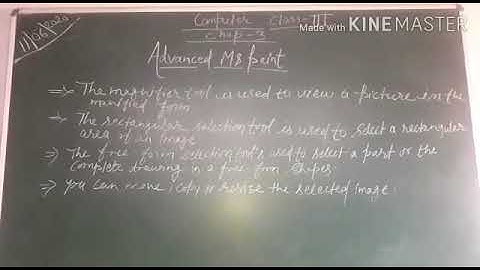 11/06/2020
Computer class-III
Chap-2
Made with KINEMASTER
Advanced MS paint
=> The magnifier tool is used to view a picture in the
manified form
=> The rectangular selection tool is used to select a rectangular
area of an image
=> The free form selection tool is used to select a part or the
complete drawing in a free-form shapes
=> You can move, copy or resize the selected image.